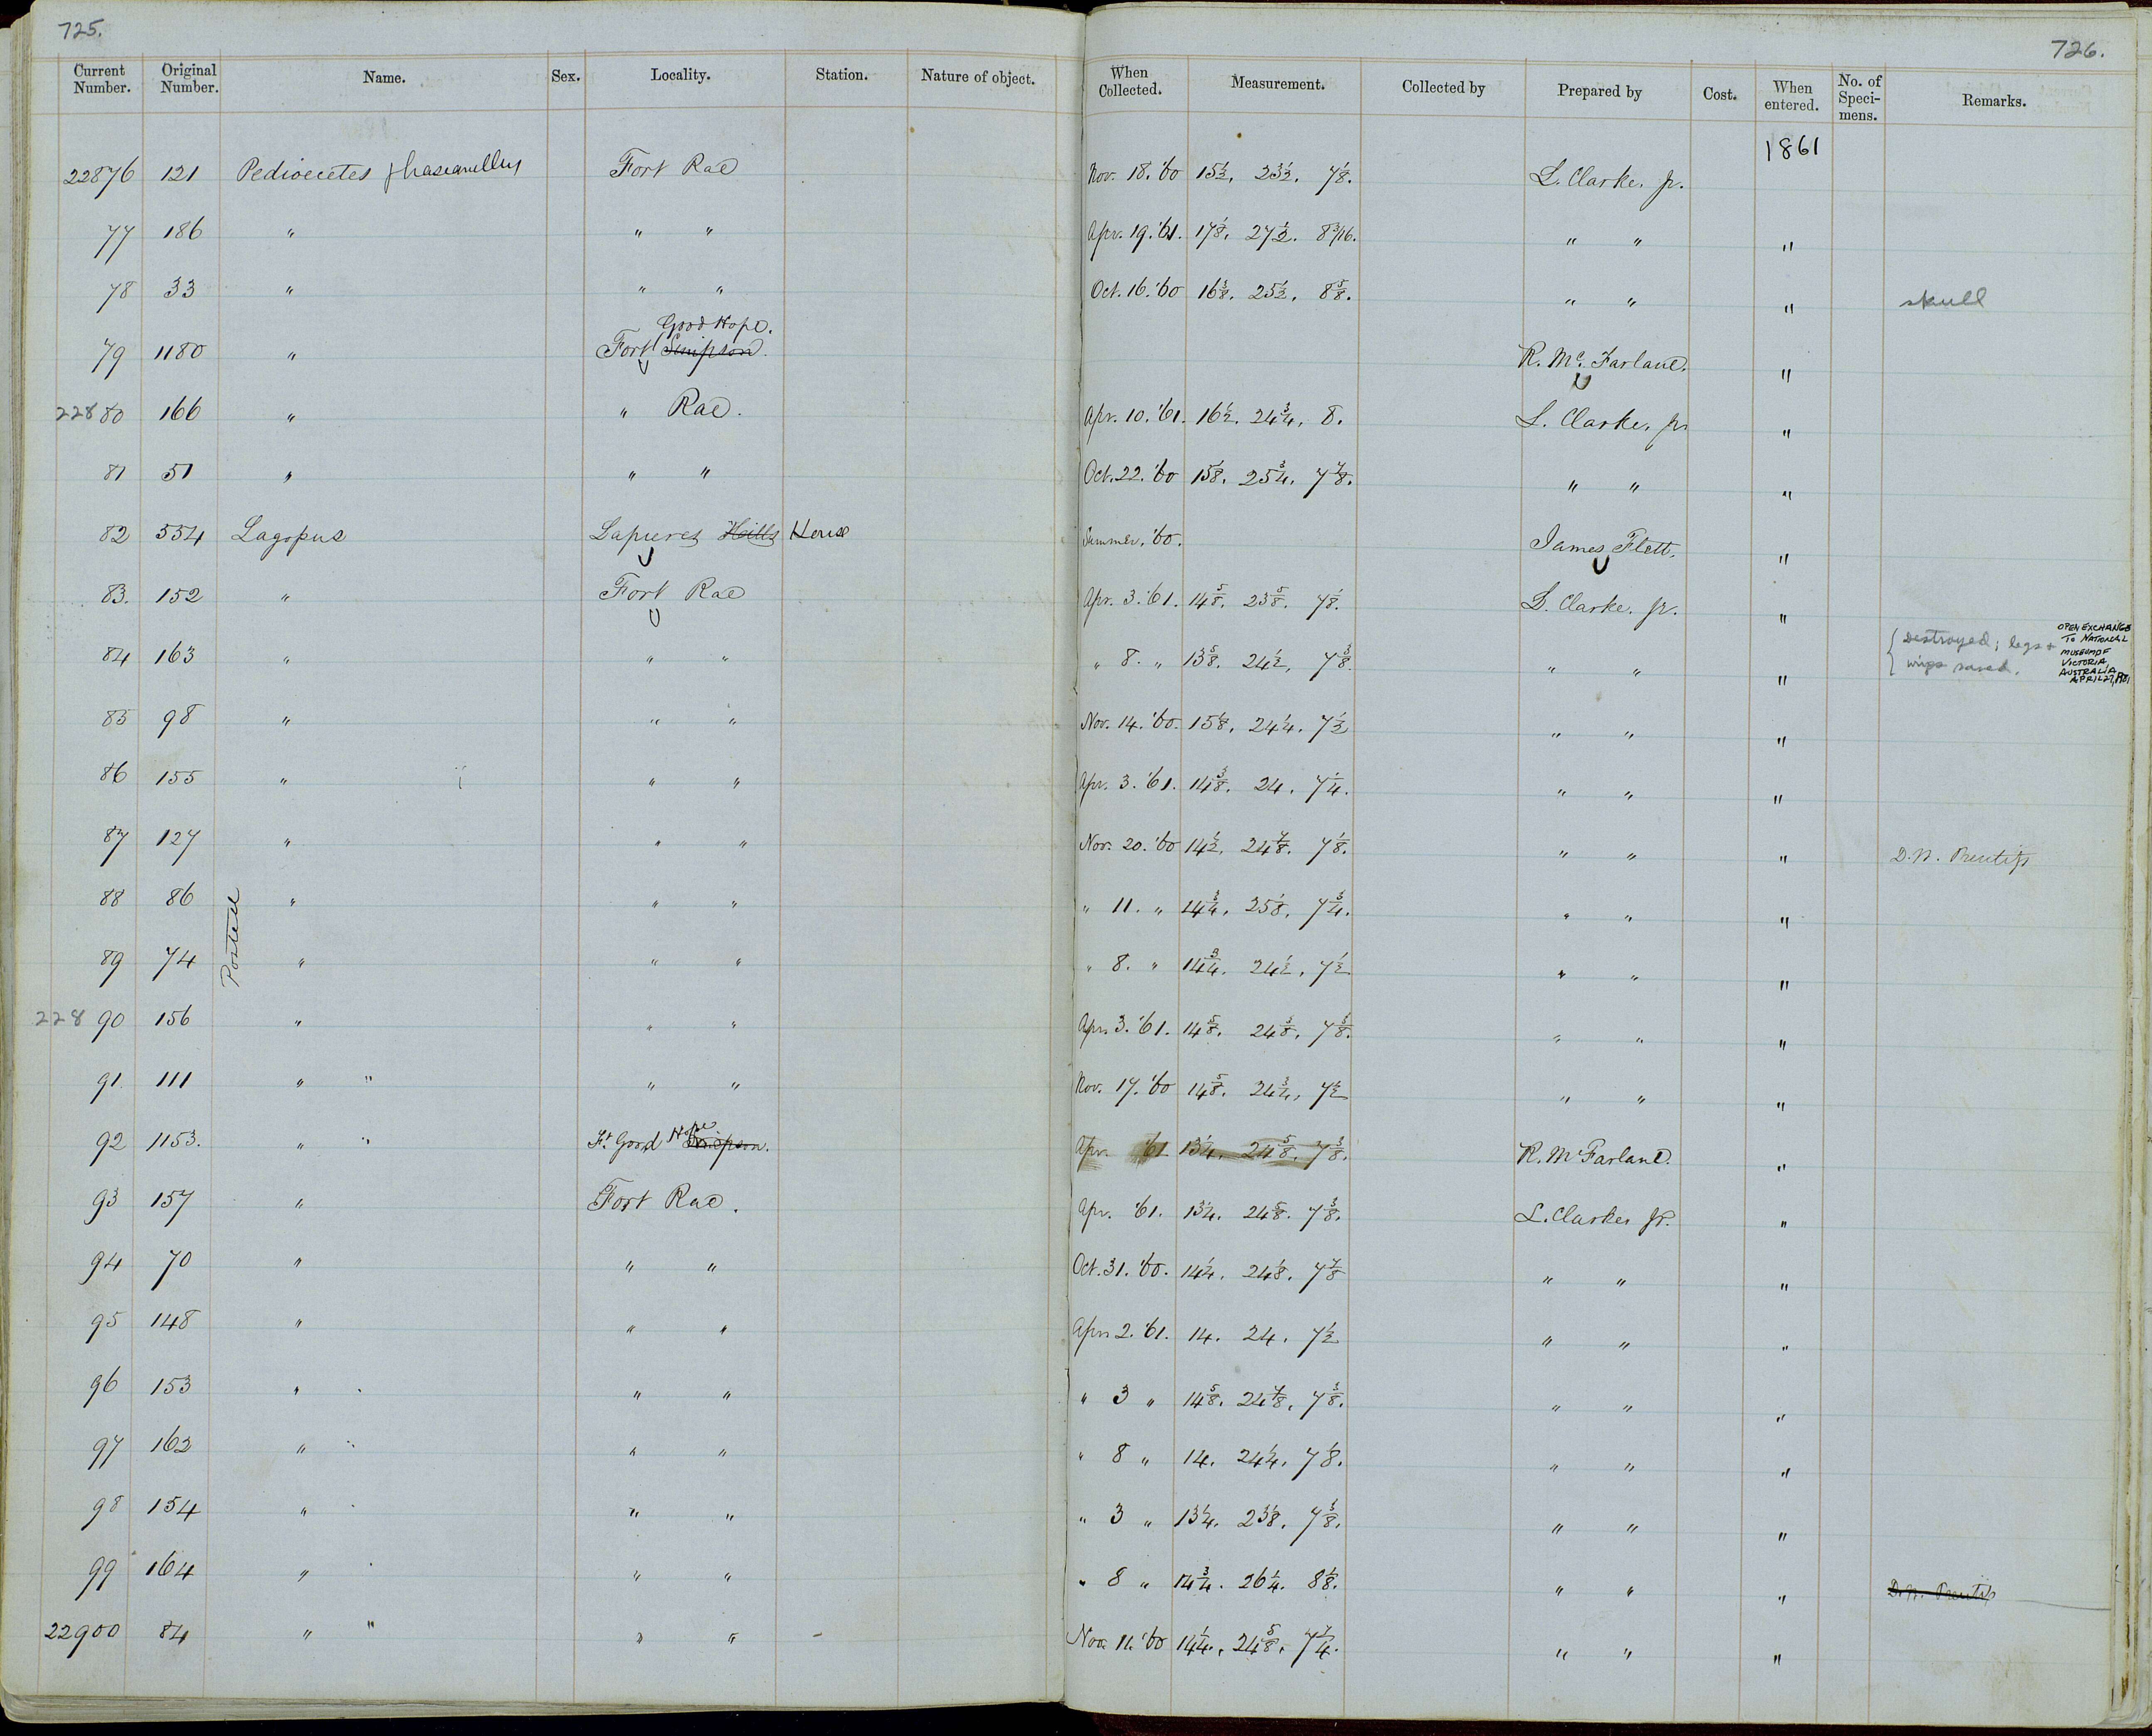 725.
726.
Current Number. Original Number. Name. Sex. Locality. Station. Nature of object. When Collected. Measurement. Collected by Prepared by Cost. When entered. No. of Speci-mens. Remarks.
1861
22876 121 Pedioecetes phasianellus Fort Rae Nov. 18. '60 15½. 23½. 7⅛. L. Clarke. jr.
77 186 " " " Apr. 19. '61. 17⅛. 27½. 8 3/16. " " "
78 33 " " " Oct. 16. '60 16⅜. 25½. 8⅝. " " " skull
Good Hope.
79 1180 " Fort Simpson. R. Mc. Farland. "
22880 166 " " Rae. Apr. 10. '61. 16½. 24¾. 8. L. Clarke, jr "
81 51 " " " Oct. 22. '60 15⅛. 25¾. 7⅞. " " "
82 554 Lagopus Lapieres Hills House Summer, '60. James Flett. "
83. 152 " Fort Rae Apr. 3. '61. 14⅝. 23⅝. 7⅛. L. Clarke. jr. "
84 163 " " " " 8. " 13⅝. 24½. 7⅜. " " " Destroyed; legs + wings saved. OPEN EXCHANGE TO NATIONAL MUSEUM OF VICTORIA, AUSTRALIA APRIL 27, 1981
85 98 " " " Nov. 14. '60. 15⅛. 24¼. 7½ " " "
86 155 " " " Apr. 3. '61. 14⅜. 24. 7¼. " " "
87 127 " " " Nov. 20. '60 14½. 24⅞. 7⅛. " " " D. N. Prentiss
88 86 " " " " 11. " 14¾. 25⅛. 7¾. " " "
Postell
89 74 " " " " 8. " 14¾. 24½. 7½ " " "
22890 156 " " " Apr. 3. '61. 14⅝. 24⅜. 7⅜. " " "
91. 111 " " " " Nov. 17. '60 14⅝. 24¾. 7½ " " "
92 1153. " " Ft. Good Hope Simpson. Apr. '61 13¼. 24⅝. 7⅜. R. McFarland. "
93 157 " Fort Rae. Apr. '61. 13¼. 24⅝. 7⅜. L. Clarke, jr. "
94 70 " " " Oct. 31. '60. 14¼. 24⅛. 7⅞ " " "
95 148 " " " Apr. 2. '61. 14. 24. 7½ " " "
96 153 " " " " 3 " 14⅝. 24⅞. 7⅜. " " "
97 162 " " " " " 8 " 14. 24¼. 7⅛. " " "
98 154 " " " " 3 " 13¼. 23⅛. 7⅜. " " "
99 164 " " " " 8 " 14¾. 26¼. 8⅛. " " " D. N. Prentiss
22900 84 " " " " Nov. 11. '60 14¼. 24⅝. " " "